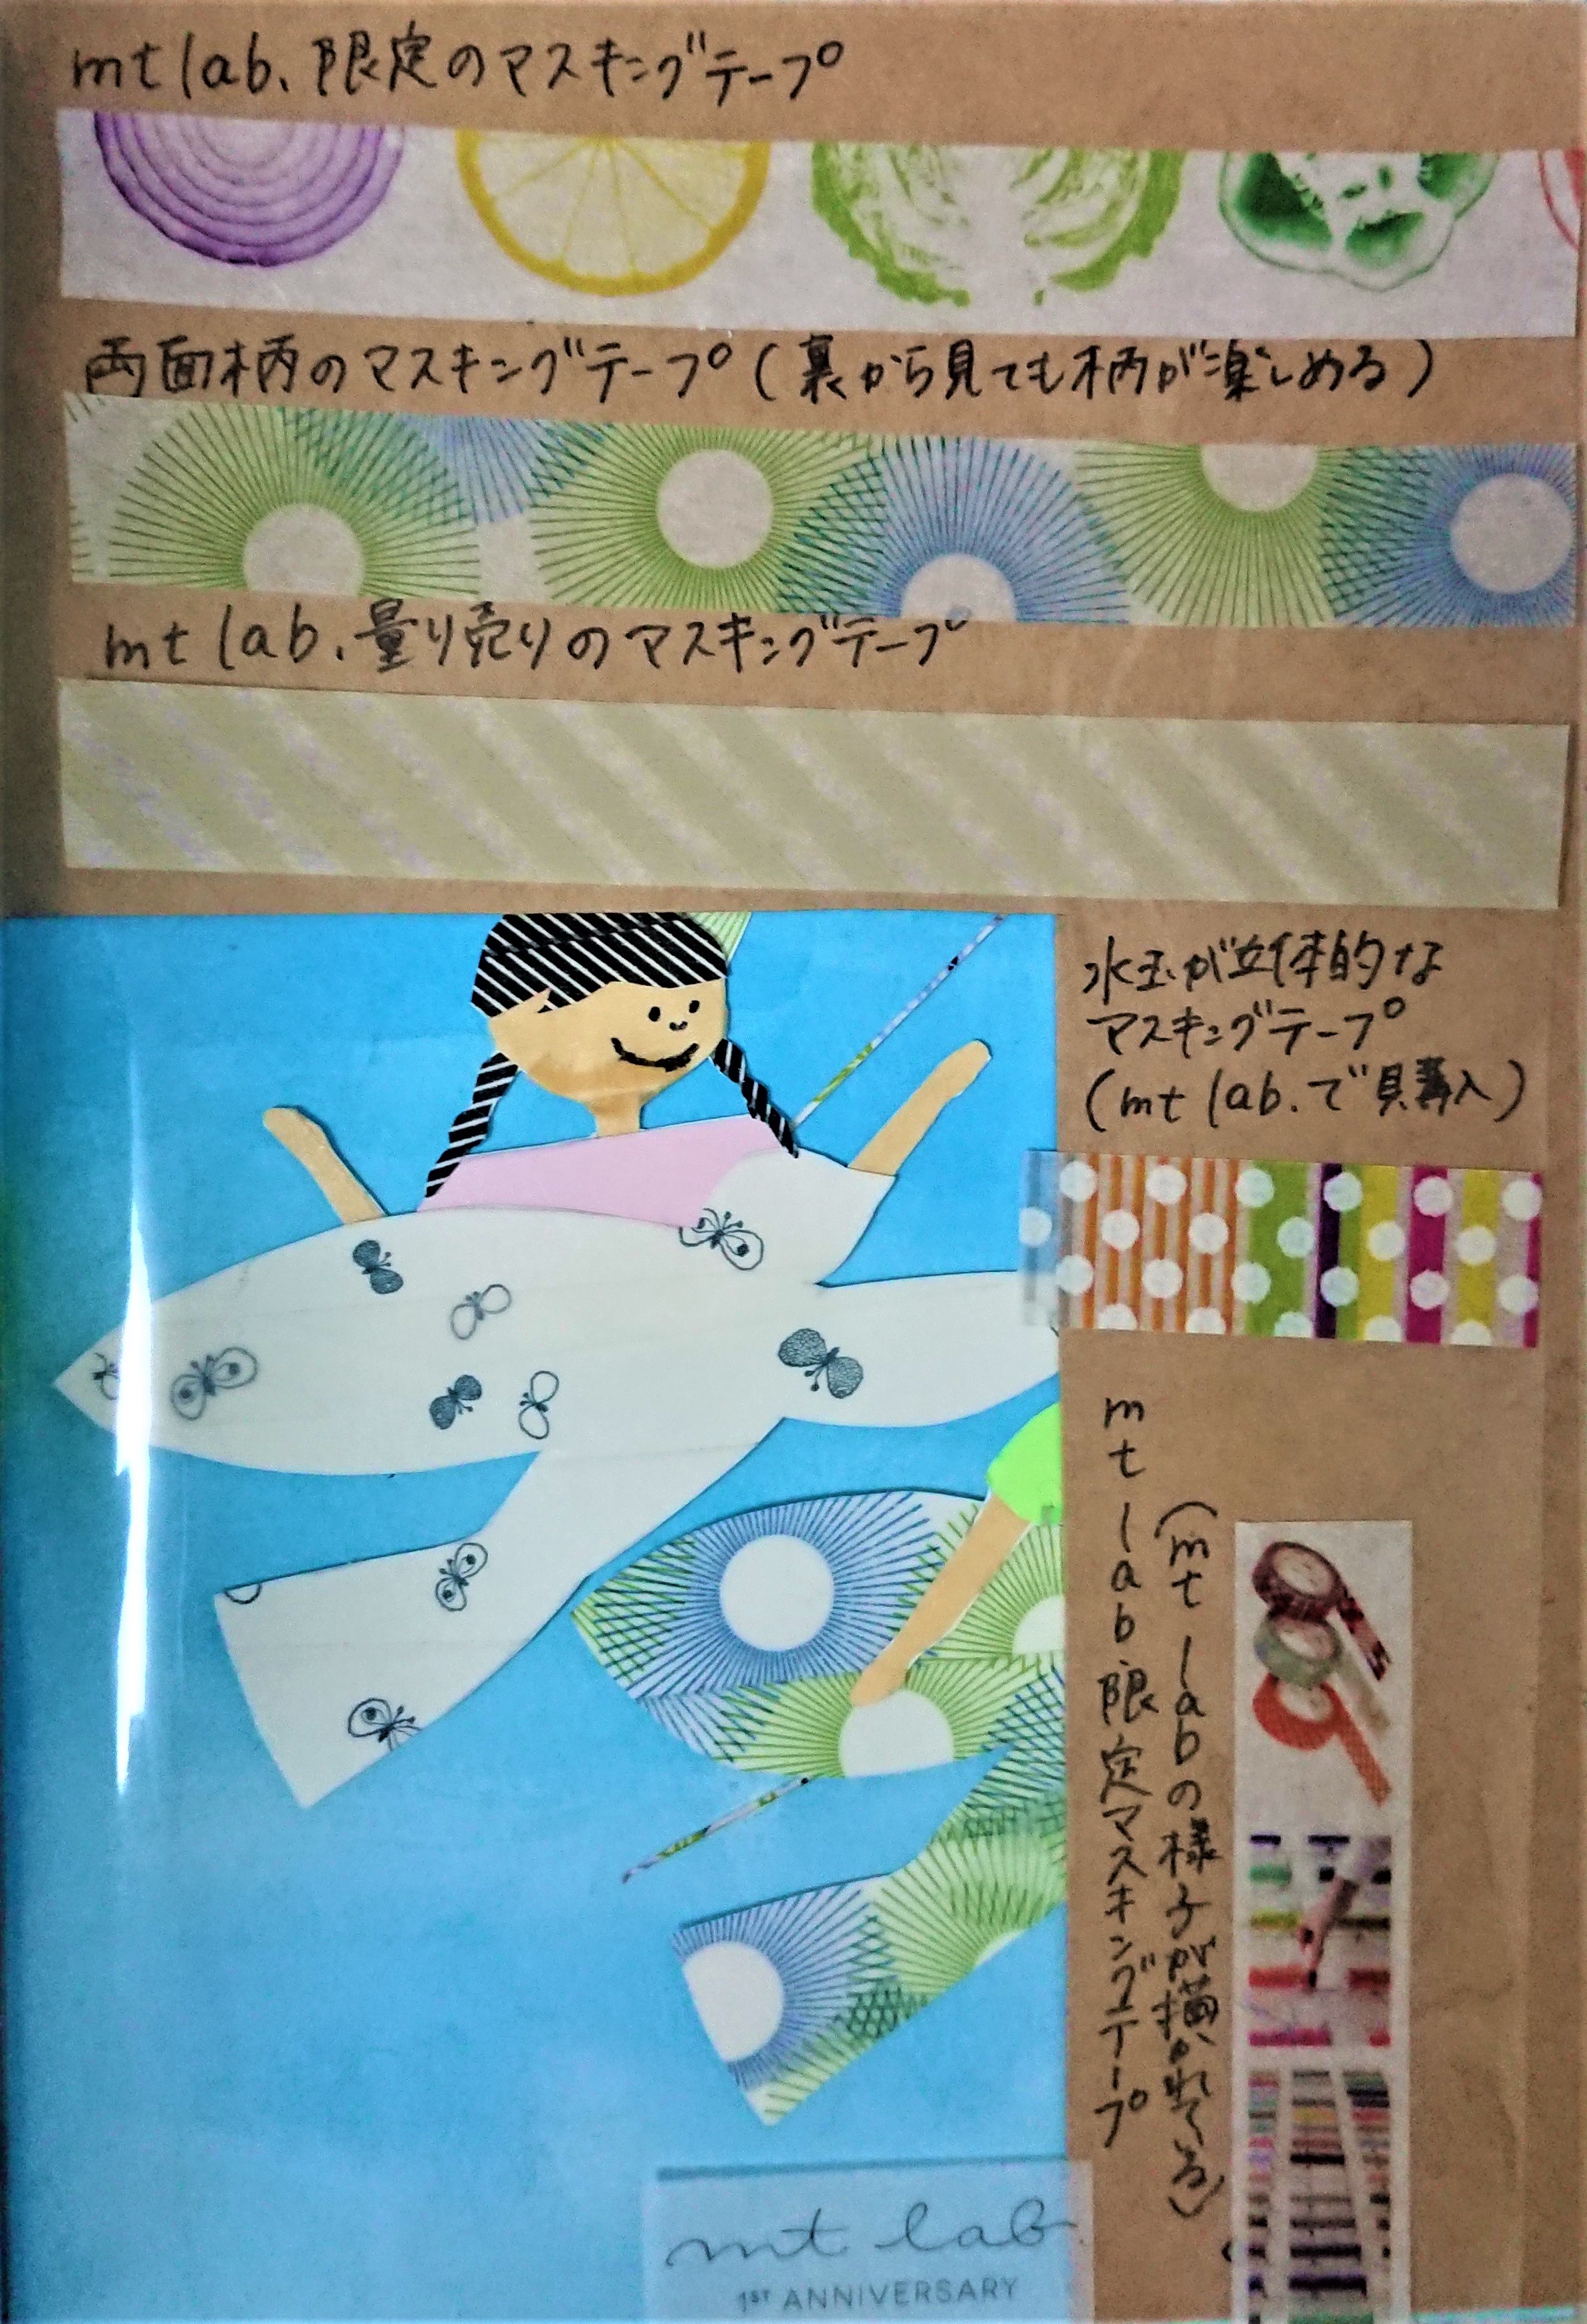 mt lab.限定のマスキングテープ
両面柄のマスキングテープ(裏から見ても柄が楽しめる)
mt lab.量り売りのマスキングテープ
水玉が立体的な
マスキングテープ
(mt lab.で購入)
mt lab.限定マスキングテープ
(mt labの様子が描かれてる)
mt lab.
1ST ANNIVERSARY